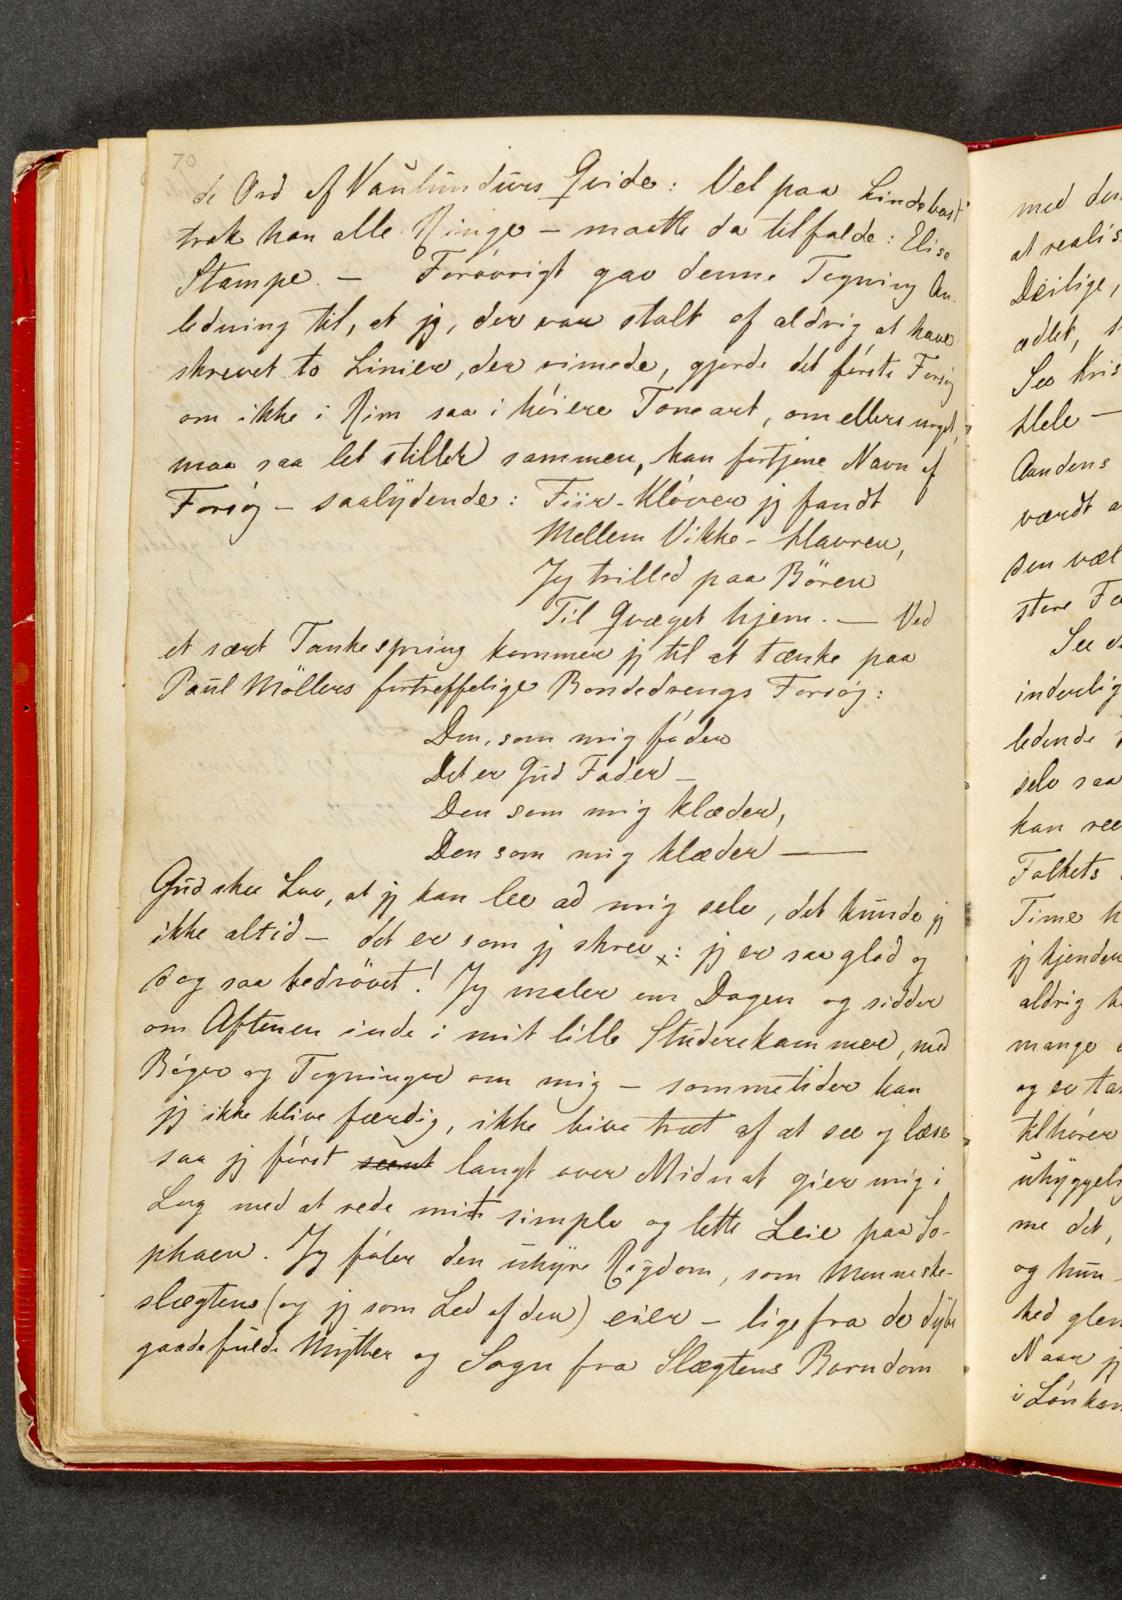 70
de Ord af Vaulundurs Qvide: Vel paa Lindebast
trak han alle Ringe – maatte da tilfalde: Elise
Stampe. – Forøvrigt gav denne Tegning An-
ledning til, at jeg, der var stolt af aldrig at have
skrevet to Linier, der rimede, gjorde det første Forsøg
om ikke i Rim saa i høiere Toneart, om ellers noget,
maa saa let stillet sammen, kan fortjene Navn af
Forsøg – saalydende: Fiir-Kløver jeg fandt
Mellem Vikke-Havren,
Jeg trilled paa Bören
Til Qvæget hjem. – Ved
et sært Tankespring kommer jeg til at tænke paa
Paul Möllers fortreffelige Bondedrengs Forsøg:
Den, som mig føder
Det er Gud Fader –
Den som mig klæder,
Den som mig klæder —
Gud skee Lov, at jeg kan lee ad mig selv, det kunde jeg
ikke altid – det er som jeg skrev x: jeg er saa glad og
og saa bedrövet! Jeg maler om Dagen og sidder
om Aftenen inde i mit lille Studerekammer, med
Bøger og Tegninger om mig – sommetider kan
jeg ikke blive færdig, ikke blive træt af at see og læse
saa jeg först seent langt over Midnat giver mig i
Lag med at rede mit simple og lette Leie paa So-
phaen. Jeg føler den uhyre Rigdom, som Menneske-
slægten (og jeg som Led af den) eier – lige fra de dybe
gaadefulde Myther og Sagn fra Slægtens Barndom
med den
at realis
Deilige,
ædlet,
See Kris
Hele –
Aandens
værdt a
den væl
store Fo
See d
inderlig
ledende
selv saa
kan see
Folkets
Time h
jeg kjender
aldrig h
mange
og er tar
uhyggeli
me det,
og hun
hed glem
Naar jeg
i Lönkam